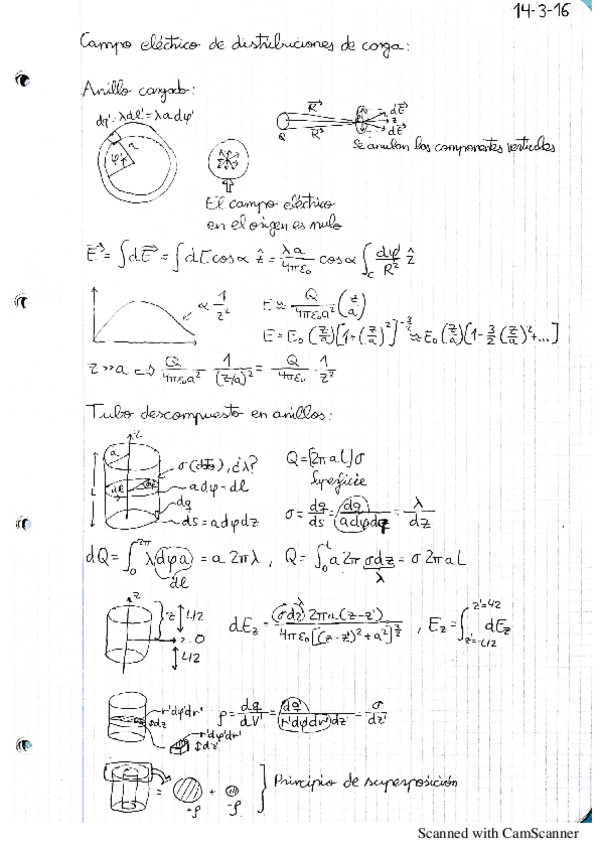 14-3-16
Campo eléctrico de distribuciones de carga:
Anillo cargado:
dq' = λdl' = λadφ'
a
φ'
Q
R⃗
R⃗
dE⃗
z
dE⃗
Se anulan las componentes verticales
El campo eléctrico
en el origen es nulo
E⃗ = ∫dE⃗ = ∫dE cosα ẑ = λa/4πε₀ cosα ∫c dφ'/R² ẑ
∝ 1/z²
E ≈ Q/4πε₀a² (z/a)
E = E₀(z/a)[1+(z/a)²]^-3/2 ≈ E₀(z/a)[1-3/2(z/a)²+...]
z>>a => Q/4πε₀a² 1/(z/a)² = Q/4πε₀ · 1/z²
Tubo descompuesto en anillos:
z
a
L
σ(dS), ¿λ?
adφ=dl
dq
ds=adφdz
Q=[2πaL]σ
Superficie
σ = dq/ds = dq/adφdz = λ/dz
dQ = ∫₀^2π λdφa = a2πλ, Q = ∫₀^L a2πσdz = σ2πaL
dl
λ
z
z
L/2
z=0
L/2
dE_z = (σdz')2πa(z-z')/4πε₀[(z-z')²+a²]^3/2, E_z = ∫_{z'=-L/2}^{z'=L/2} dE_z
r'dφ'dr'
dz'
r'dφ'dr'
dz'
ρ = dq/dV' = dq'/(r'dφ'dr')dz' = σ/dz'
= + } Principio de superposición
+ρ
-ρ
Scanned with CamScanner